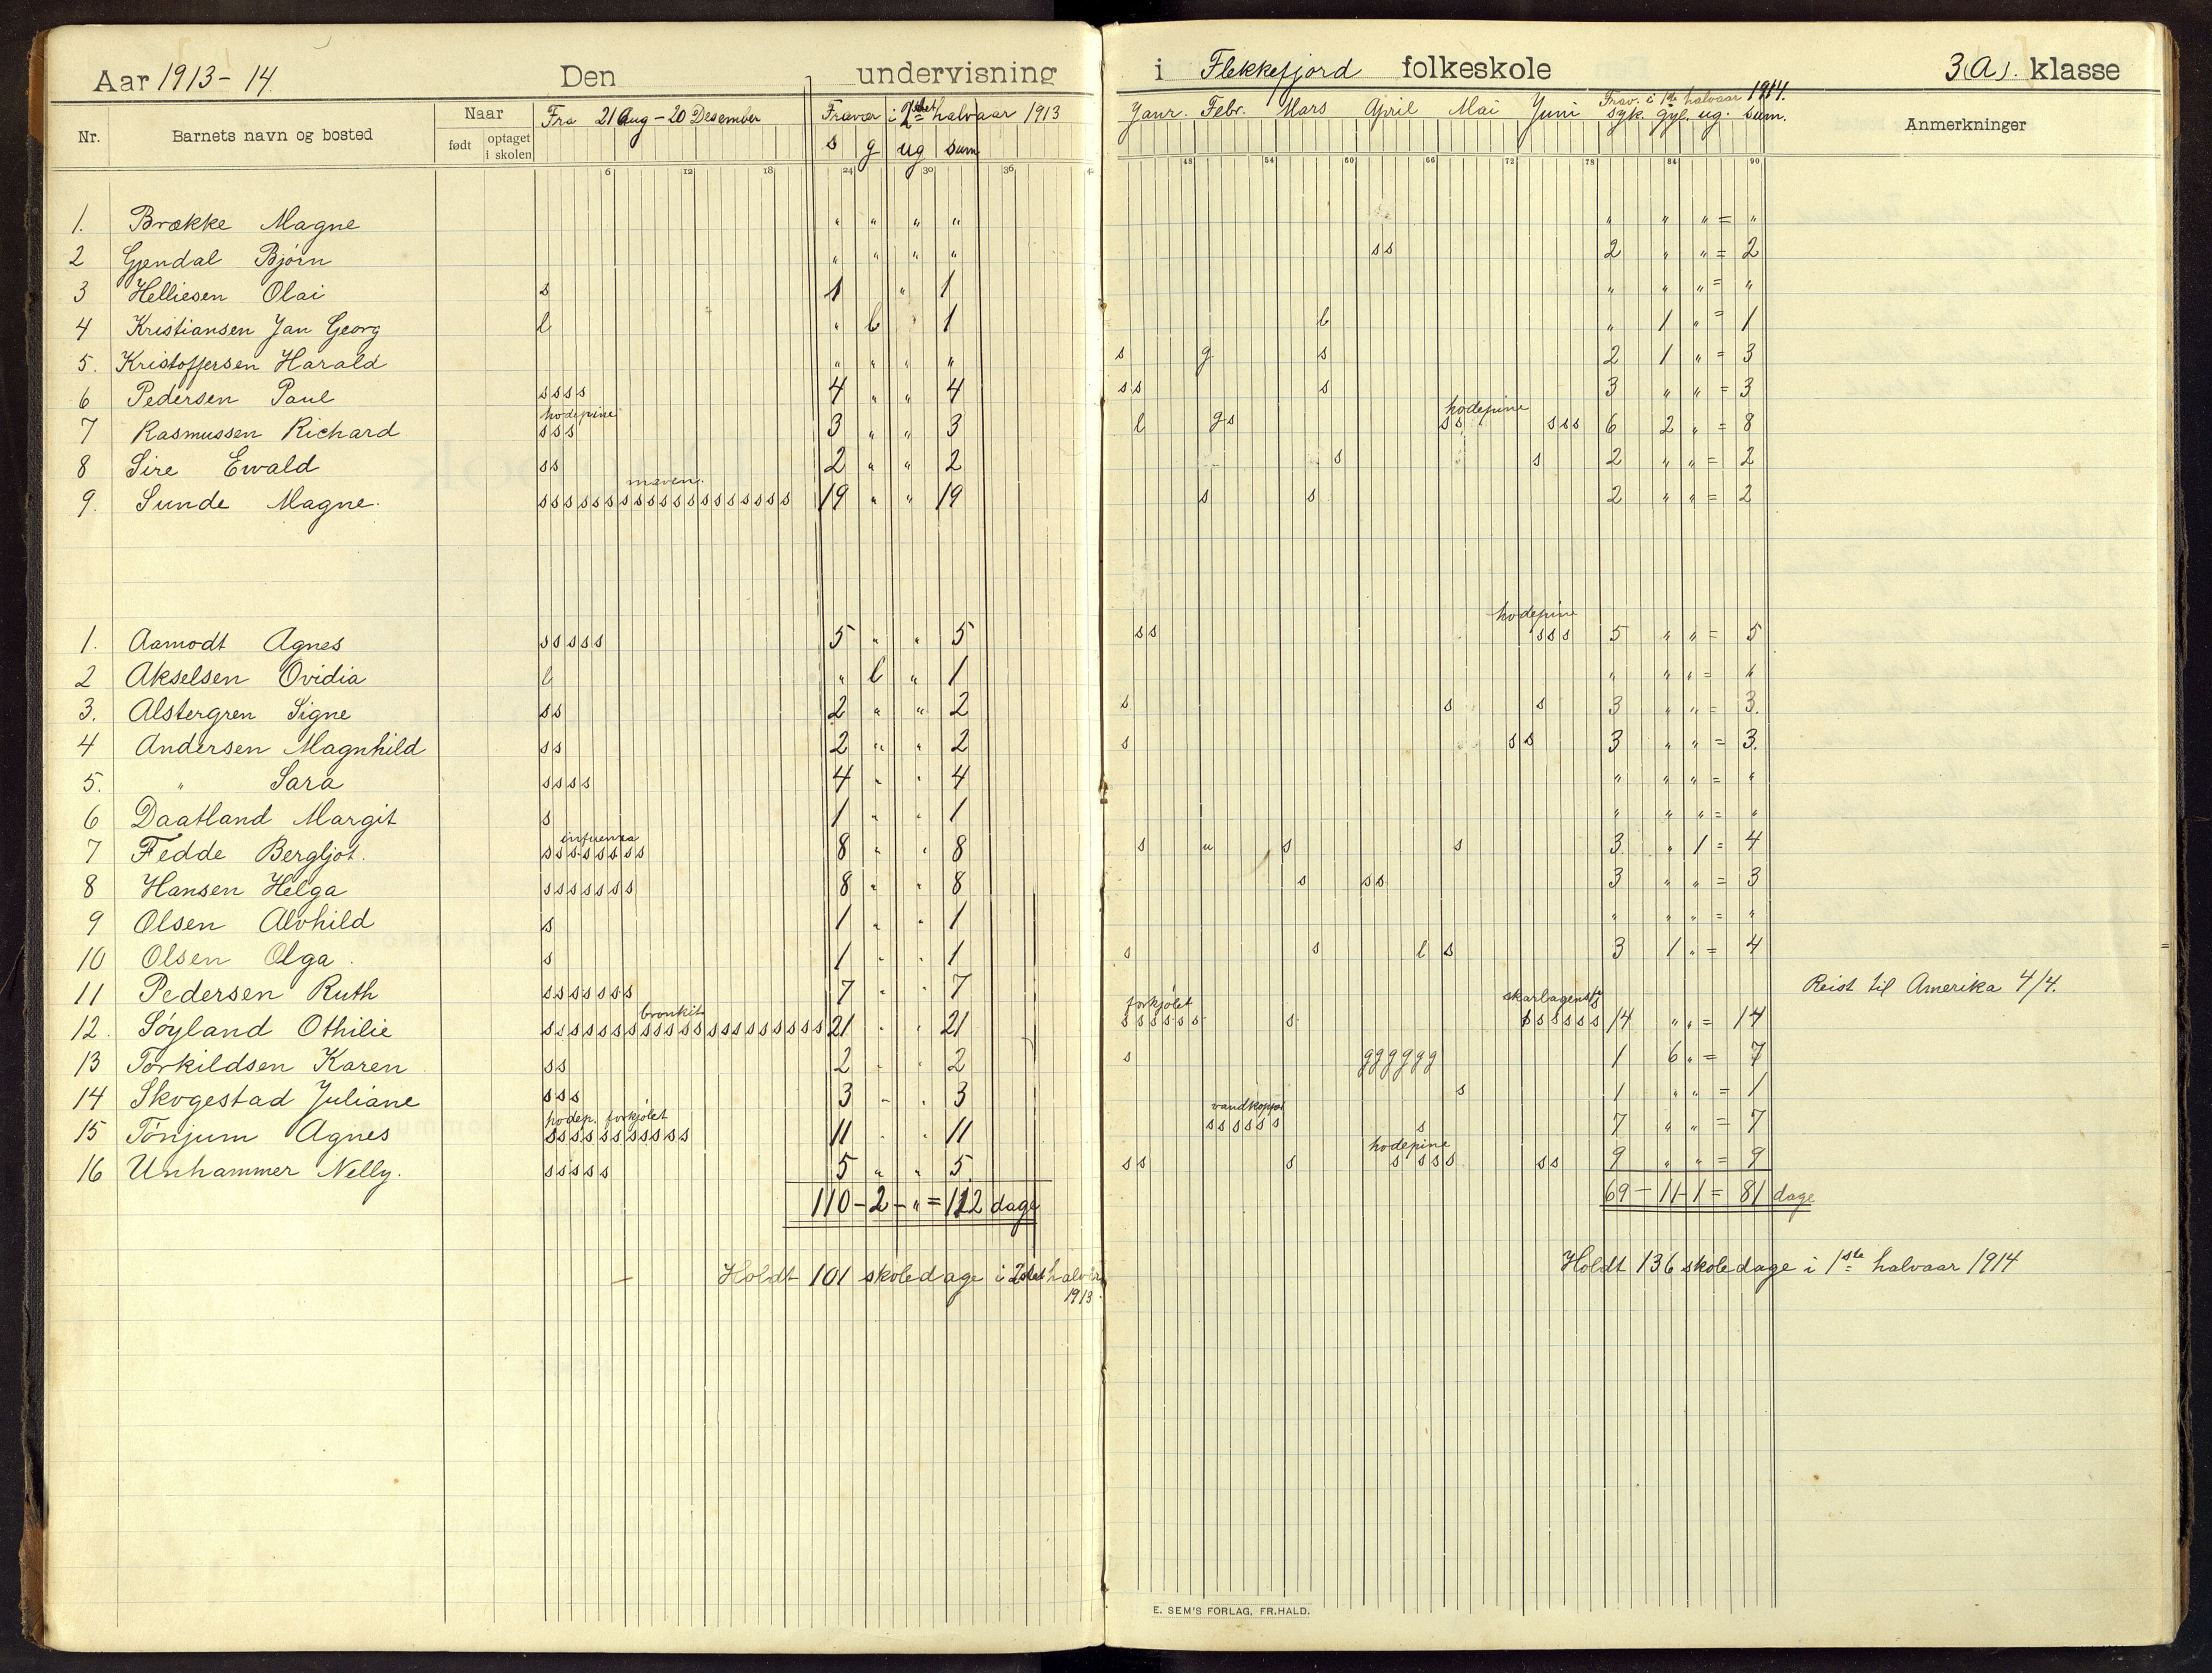 Aar 1913-14 Den undervisning i Flekkefjord folkeskole 3(A). klasse
Nr. Barnets navn og bosted Naar født optaget i skolen Fra 21 Aug - 20 Desember Fravær i 2det halvaar 1913 s g ug sum
Janr. Febr. Mars April Mai Juni Frav. i 1ste halvaar 1914. syk. gyl. ug. sum. Anmerkninger
6 12 18 24 30 36 42 48 54 60 66 72 78 84 90
1. Brække Magne " " " " " " " = "
2 Gjendal Bjørn " " " " ss 2 " " = 2
3 Helliesen Olai s 1 " 1 " " " = "
4 Kristiansen Jan Georg l " l 1 l " 1 " = 1
5. Kristoffersen Harald " " " " s g s 2 1 " = 3
6 Pedersen Paul ssss 4 " " 4 ss s 3 " " = 3
7 Rasmussen Richard hodepine sss 3 " " 3 l gs hodepine ss sss 6 2 " = 8
8 Sire Ewald ss 2 " " 2 s s 2 " " = 2
9. Sunde Magne. maven. sssssssssssssssssss 19 " " 19 s s 2 " " = 2
1. Aamodt Agnes sssss 5 " " 5 ss hodepine sss 5 " " = 5
2 Akselsen Ovidia l " l " 1 " " " = "
3. Alstergren Signe ss 2 " " 2 s s s 3 " " = 3.
4 Andersen Magnhild ss 2 " " 2 s ss 3 " " = 3.
5. " Sara ssss 4 " " 4 " " " = "
6 Daatland Margit s 1 " " 1 " " " = "
7 Fedde Bergljot. influenza ssssssss 8 " " 8 s u s s 3 " 1 = 4
8 Hansen Helga sssssss 8 " " 8 s ss 3 " " = 3
9 Olsen Alvhild s 1 " " 1 " " " = "
10 Olsen Olga. s 1 " " 1 s s l s 3 1 " = 4
11 Pedersen Ruth sssssss 7 " " 7 Reist til Amerika 4/4.
12. Søyland Othilie bronkit sssssssssssssssssssss 21 " " 21 forkjølet ssssss s skarlagensf. ssssss 14 " " = 14
13 Torkildsen Karen ss 2 " " 2 s gggggg 1 6 " = 7
14 Skogestad Juliane sss 3 " " 3 s 1 " " = 1
15 Tónjum Agnes hodep. forkjølet sssssssssss 11 " " 11 vandkopper ssssss s 7 " " = 7
16 Unhammer Nelly. sssss 5 " " 5 ss s hodepine s sss ss 9 " " = 9
110 - 2 - " = 112 dage 69 - 11 - 1 = 81 dage
Holdt 101 skoledage i 2det halvår 1913.
Holdt 136 skoledage i 1ste halvaar 1914
E. SEM'S FORLAG, FR.HALD.